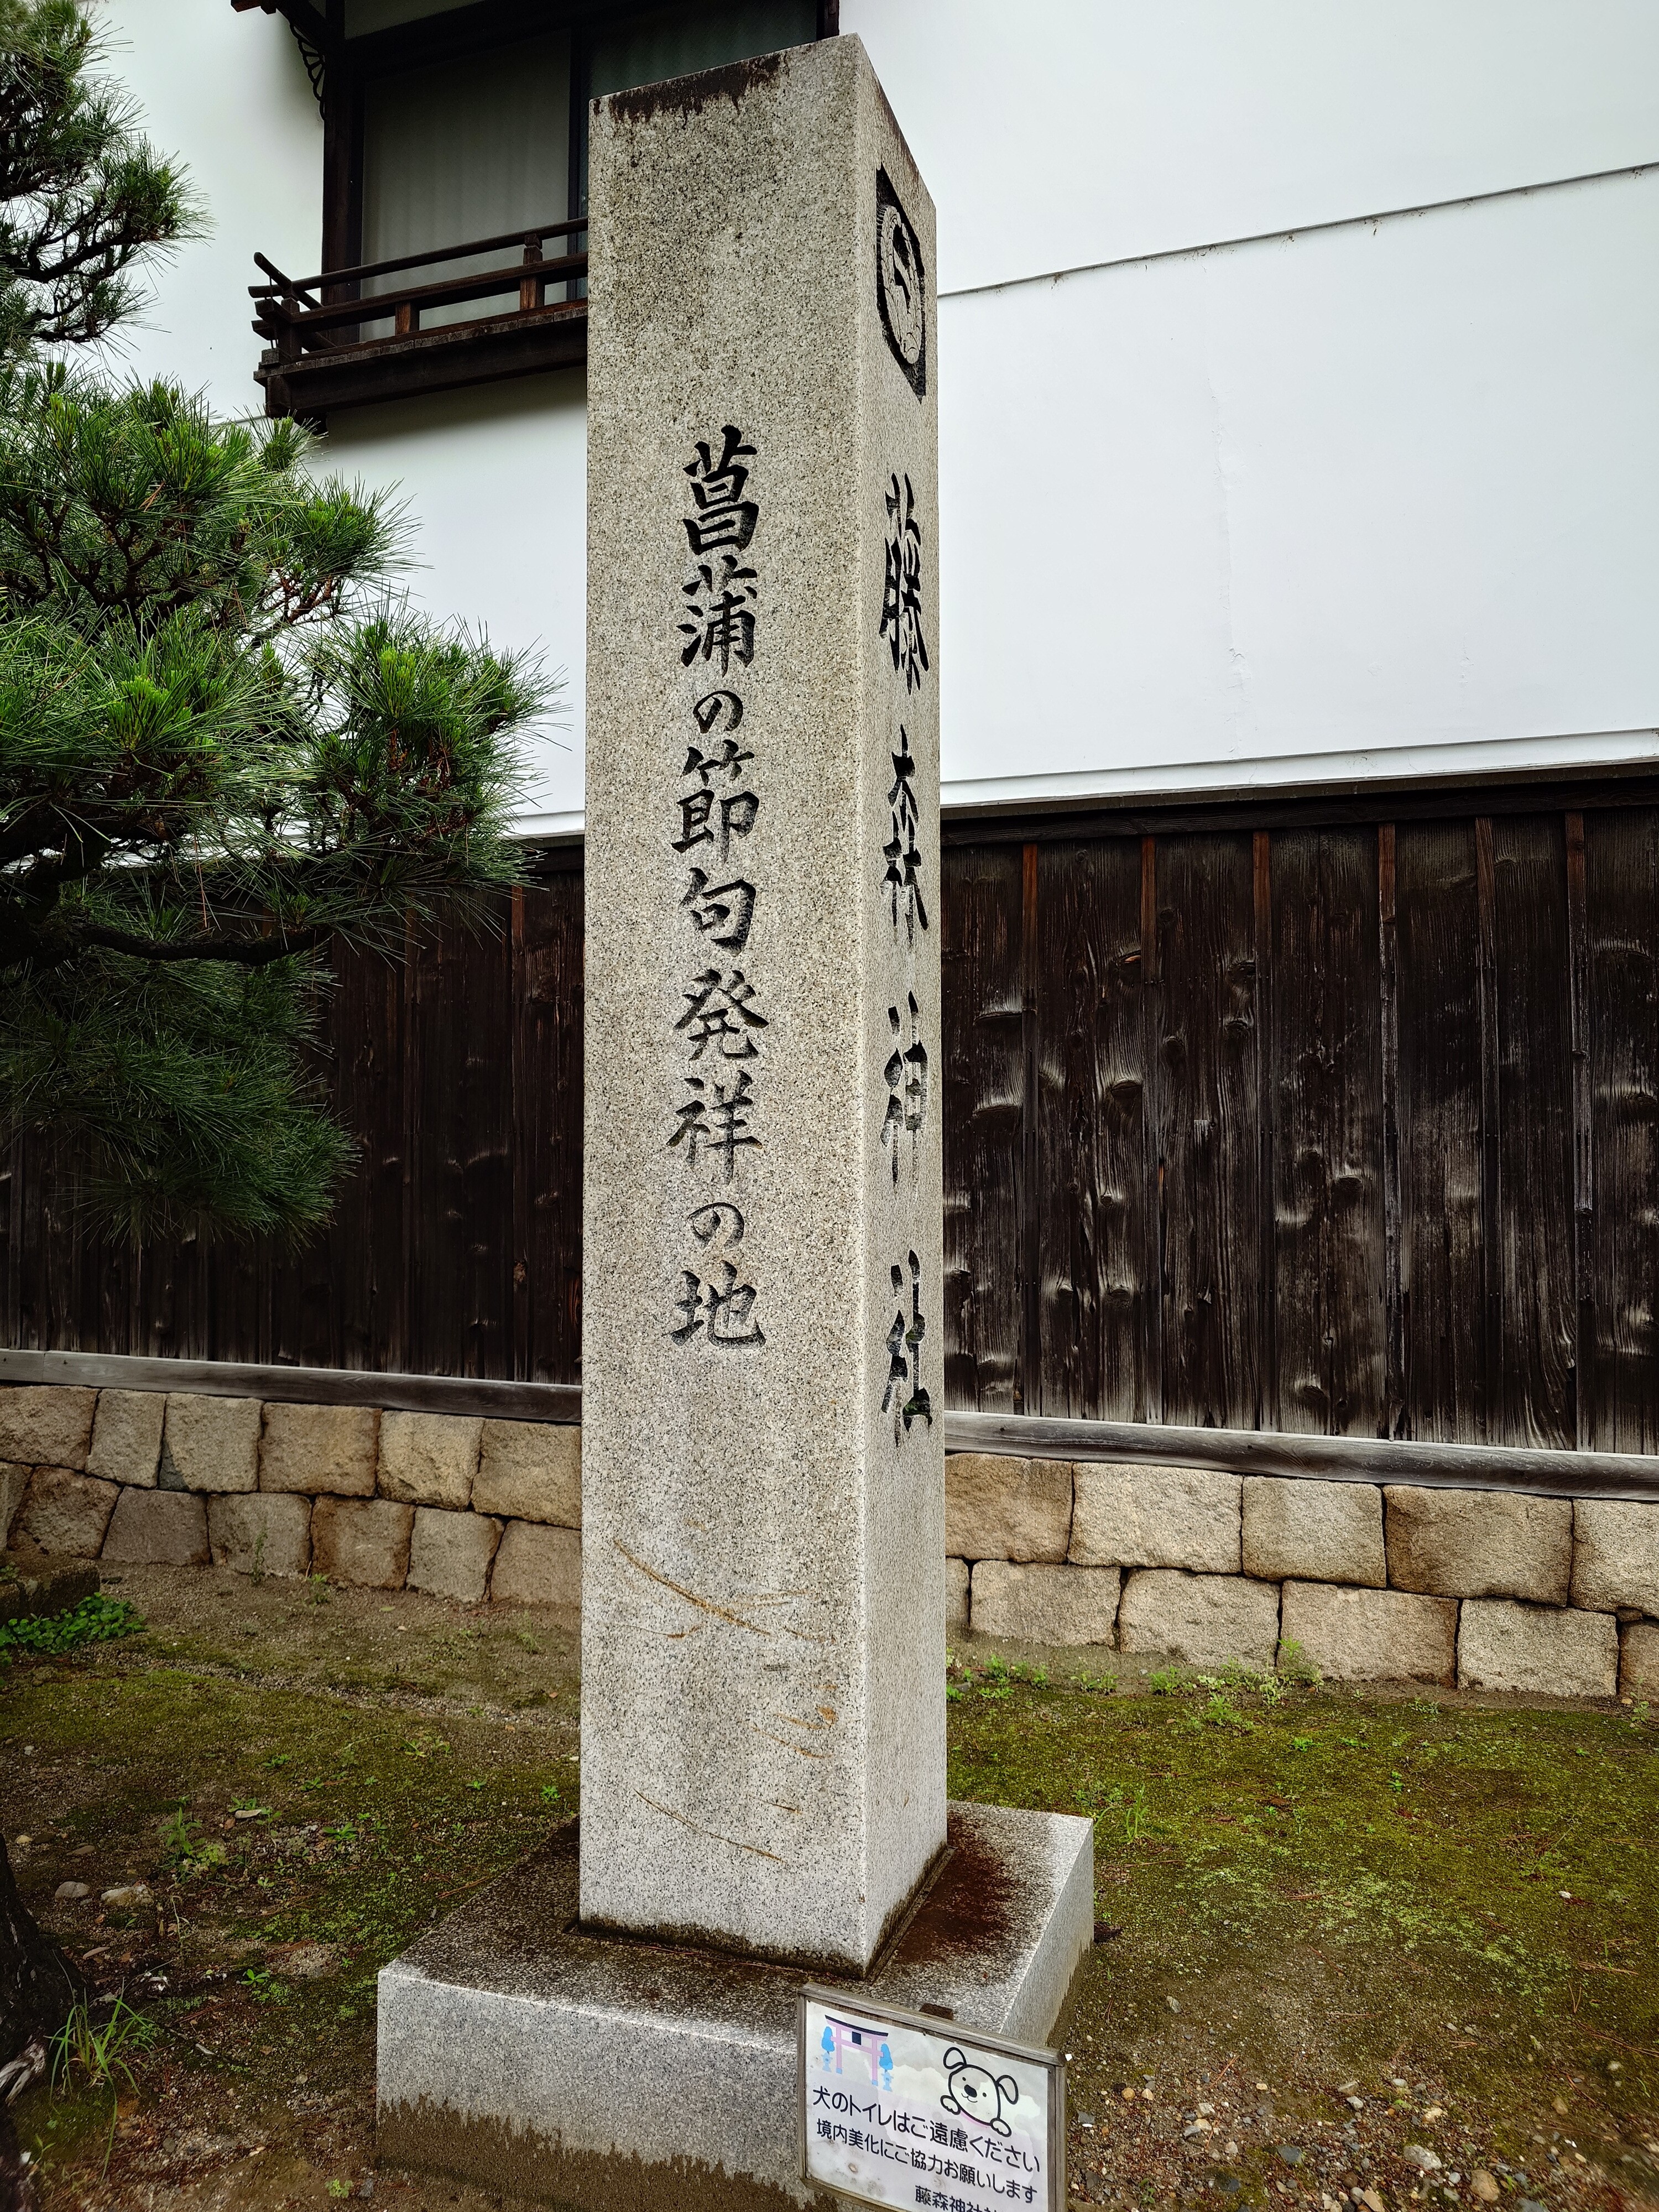 菖蒲の節句発祥の地
藤森神社
犬のトイレはご遠慮ください
境内美化にご協力お願いします
藤森神社